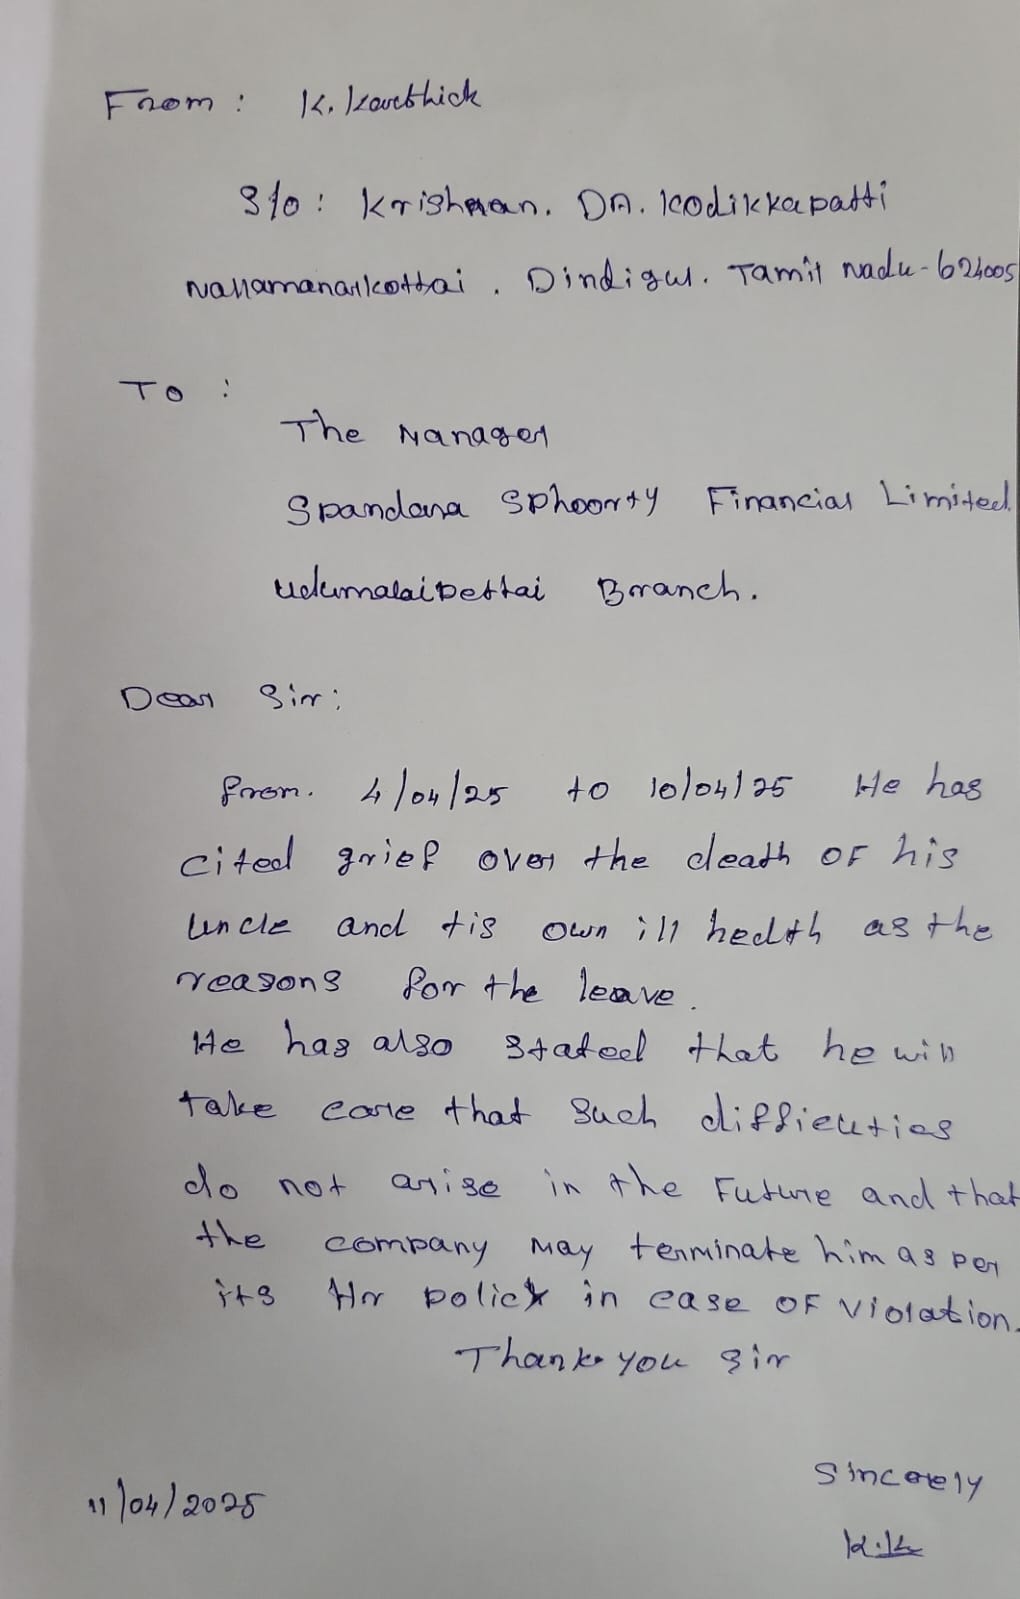 From : K. Karthick
S/o : Krishnan. DA. Kodikkapatti
Nallamanarkottai . Dindigul. Tamil Nadu - 624005
To :
The Manager
Spandana Sphoorty Financial Limited
Udumalaipettai Branch.
Dear Sir:
from. 4/04/25 to 10/04/25 He has
cited grief over the death of his
uncle and tis own ill hedlth as the
reasons for the leave.
He has also stated that he will
take care that such difficuties
do not arise in the Future and that
the company may terminate him as per
its Hr policy in case of violation.
Thank you sir
Sincerely
11/04/2025
K.K